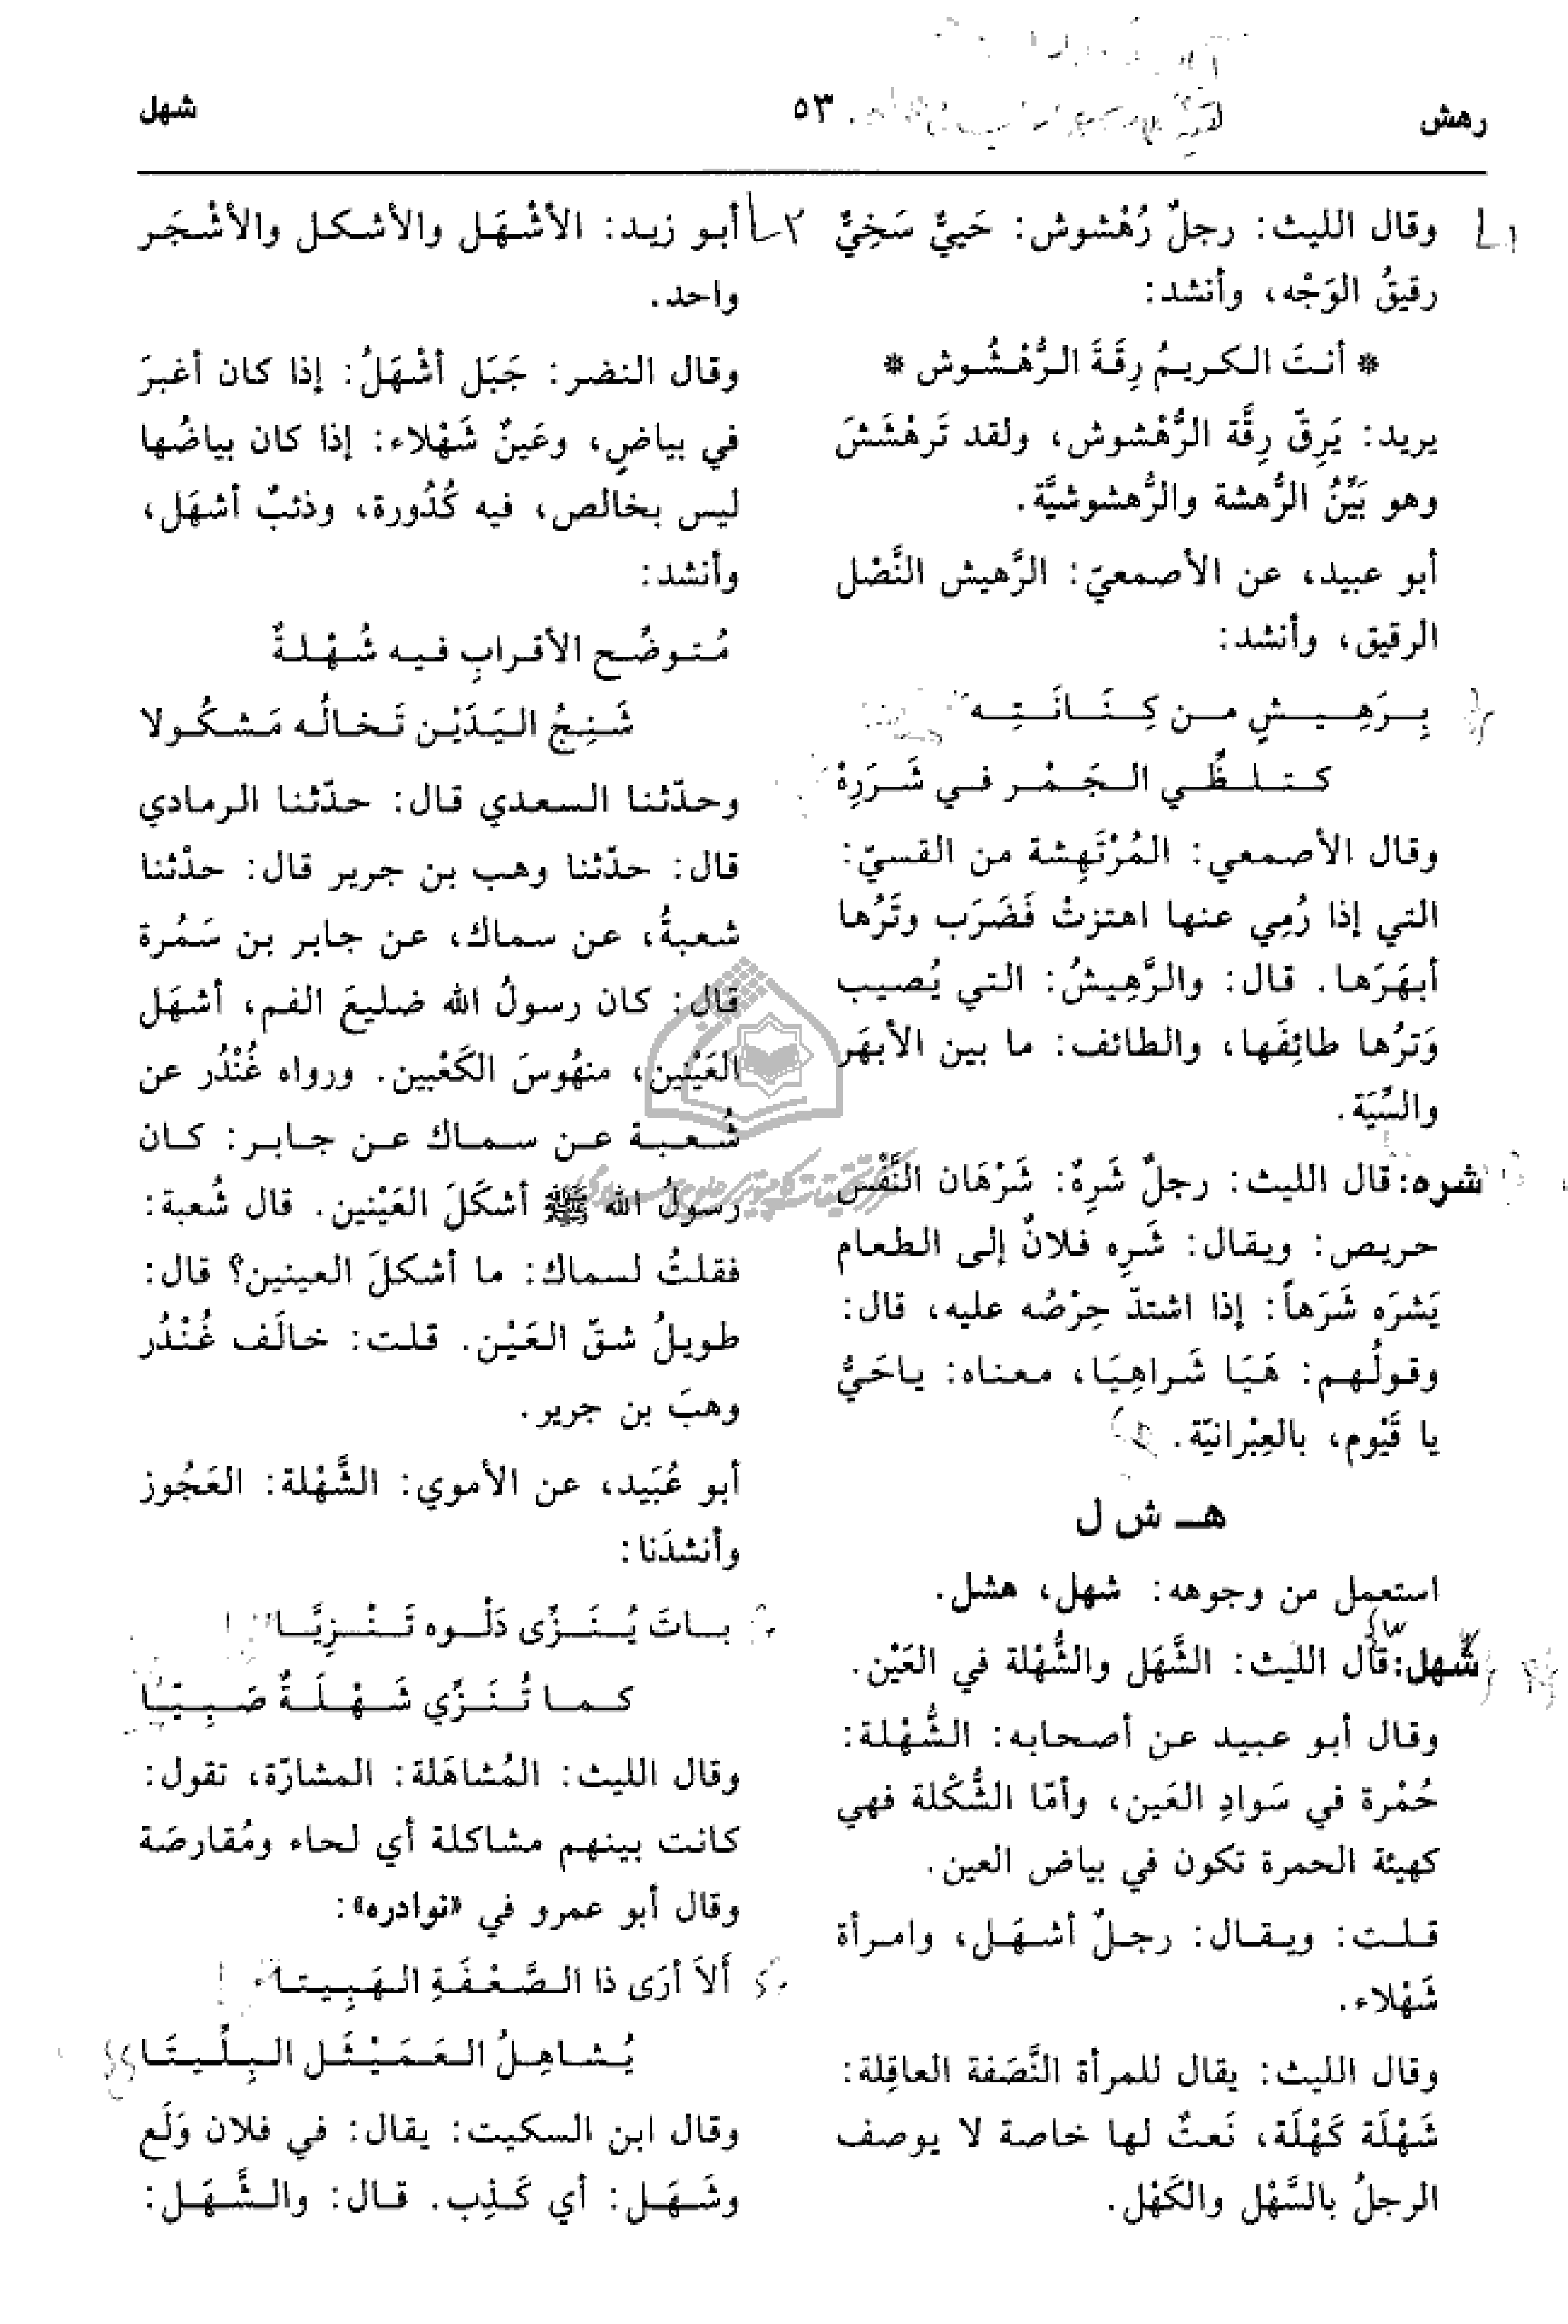 رهش
٥٣
شهل
وقال الليث: رجلٌ رُهْشوش: حَييٌّ سَخِيٌّ
رقيقُ الوَجْه، وأنشد:
* أنتَ الكريمُ رِقَةَ الرُّهْشُوش *
يريد: يَرِقّ رِقَّة الرُّهْشوش، ولقد تَرهْشَشَ
وهو بَيِّنُ الرُّهشة والرُّهشوشيَّة.
أبو عبيد، عن الأصمعيّ: الرَّهيش النَّصْل
الرقيق، وأنشد:
بِرَهِيشٍ من كِنَانَتِه
كتلظِّي الجَمْر في شَرَرِهْ
وقال الأصمعي: المُرْتَهِشة من القسيّ:
التي إذا رُمِي عنها اهتزتْ فَضَرَب وتَرُها
أبهَرَها. قال: والرَّهِيشُ: التي يُصيب
وَترُها طائِفَها، والطائف: ما بين الأبهَر
والسِّيَة.
شره: قال الليث: رجلٌ شَرِهٌ: شَرْهَان النَّفْس
حريص: ويقال: شَرِه فلانٌ إلى الطعام
يَشرَه شَرَهاً: إذا اشتدّ حِرْصُه عليه، قال:
وقولُهم: هَيَا شَراهِيَا، معناه: ياحَيُّ
يا قَيْوم، بالعِبْرانيّة.
هـ ش ل
استعمل من وجوهه: شهل، هشل.
شهل: قال الليث: الشَّهَل والشُّهْلة في العَيْن.
وقال أبو عبيد عن أصحابه: الشُّهْلة:
حُمْرة في سَوادِ العَين، وأمّا الشُّكْلة فهي
كهيئة الحمرة تكون في بياض العين.
قلت: ويقال: رجلٌ أشهَل، وامرأة
شَهْلاء.
وقال الليث: يقال للمرأة النَّصَفة العاقِلة:
شَهْلَة كَهْلَة، نَعتٌ لها خاصة لا يوصف
الرجلُ بالشَّهْل والكَهْل.
أبو زيد: الأشْهَل والأشكل والأشْجَر
واحد.
وقال النضر: جَبَل أشْهَلُ: إذا كان أغبرَ
في بياضٍ، وعَينٌ شَهْلاء: إذا كان بياضُها
ليس بخالص، فيه كُدُورة، وذئبٌ أشهَل،
وأنشد:
مُتوضِّح الأقرابِ فيه شُهْلةٌ
شَنِجُ اليَدَيْن تَخالُه مَشكُولا
وحدّثنا السعدي قال: حدّثنا الرمادي
قال: حدّثنا وهب بن جرير قال: حدّثنا
شعبةُ، عن سماك، عن جابر بن سَمُرة
قال: كان رسولُ الله ضليعَ الفم، أشهَل
العَيْنين، منهُوسَ الكَعْبين. ورواه غُنْدُر عن
شُعبة عن سماك عن جابر: كان
رسولُ الله ﷺ أشكَلَ العَيْنين. قال شُعبة:
فقلتُ لسماك: ما أشكلَ العينين؟ قال:
طويلُ شقّ العَيْن. قلت: خالَف غُنْدُر
وهبَ بن جرير.
أبو عُبَيد، عن الأموي: الشَّهْلة: العَجُوز
وأنشدَنا:
باتَ يُنَزِّى دَلْوه تَنْزِيَّا
كما تُنَزِّي شَهْلَةٌ صَبِيّا
وقال الليث: المُشاهَلة: المشارّة، تقول:
كانت بينهم مشاكلة أي لحاء ومُقارصَة
وقال أبو عمرو في «نوادره»:
أَلاَ أرَى ذا الضَّعْفَةِ الهَبِيتا
يُشاهِلُ العَمَيْثَل البِلِّيتَا
وقال ابن السكيت: يقال: في فلان وَلَع
وشَهَل: أي كَذِب. قال: والشَّهَل: